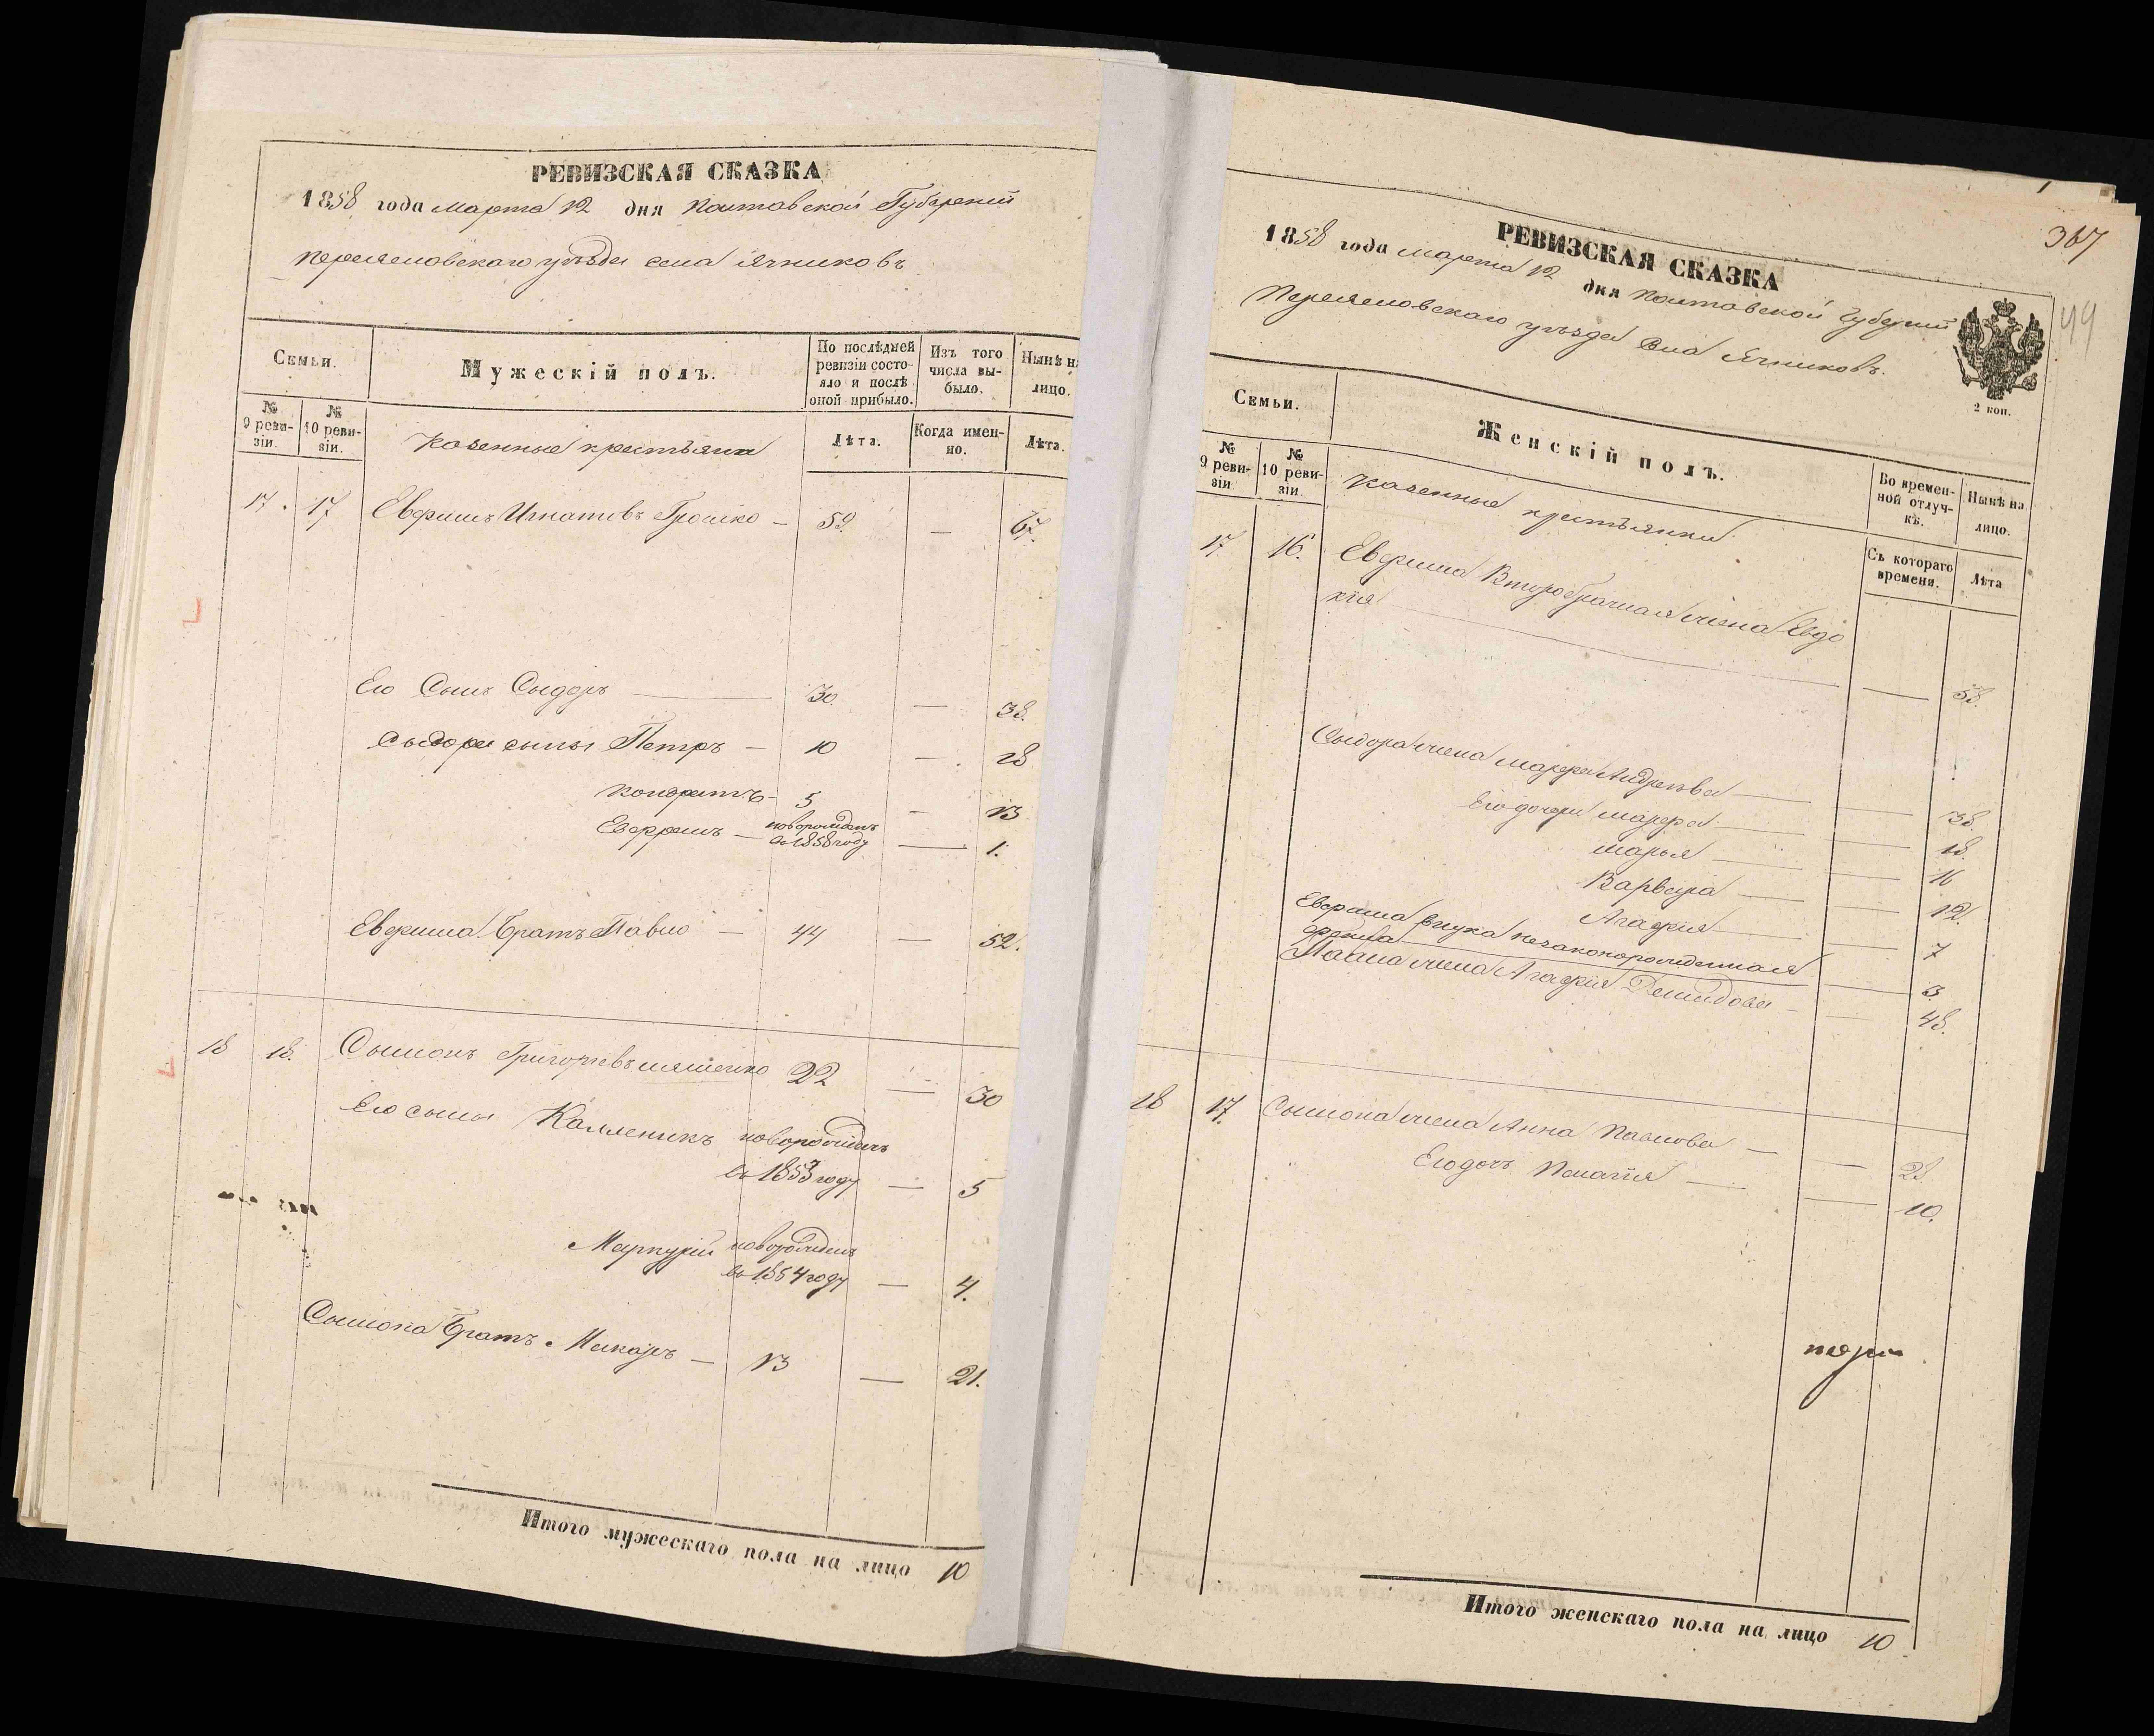 РЕВИЗСКАЯ СКАЗКА
1858 года Марта 12 дня Полтавской Губернии
Переяславского уезда села Ячников
Семьи.
Мужескій полъ.
По послѣдней ревизіи состояло и послѣ оной прибыло.
Изъ того числа выбыло.
Нынѣ на лицо.
№ 9 ревизіи.
№ 10 ревизіи.
Казенные крестьяне
Лѣта.
Когда именно.
Лѣта.
17. 17 Ефрим Игнатов Грошко — 59 — 67.
Его Сынъ Сыдоръ — 30. — 38.
Сыдора сыны Петръ — 10 — 18
Кондратъ — 5 — 13
Ефремъ — новорожденъ
въ 1858 году — 1.
Ефрима Братъ Павло — 44 — 52.
18 18. Сымонъ Григорьевъ 22 — 30
Его сыны Каленикъ новорожденъ
въ 1853 году — 5
Меркурій новорожденъ
въ 1854 году — 4.
Сымона Братъ Макаръ — 13 — 21.
Итого мужескаго пола на лицо 10
367
44
РЕВИЗСКАЯ СКАЗКА
1858 года Марта 12 дня Полтавской Губернии
Переяславскаго уезда Села Ячников.
2 коп.
Семьи.
Женскій полъ.
Во временной отлучкѣ.
Нынѣ на лицо.
№ 9 ревизіи
№ 10 ревизіи
Казенные крестьянки
Съ котораго времени.
Лѣта
17 16. Ефрима Второбрачная жена Евдо
кия — 58.
Сыдора жена Марфа Андреева — 38.
Его дочери Марфа — 18.
Марья — 16
Варвара — 12.
Агафия — 7
Ефрима внука незаконорожденная
— 3.
Павла жена Агафия Демидова — 48.
18 17. Сымона жена Анна Павлова — 28
Его дочь Пелагия — 10.
Итого женскаго пола на лицо 10